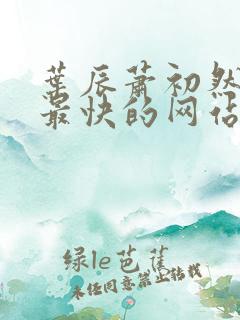 叶辰萧初然
最快的网站
绿le芭蕉
未经同意禁止转载